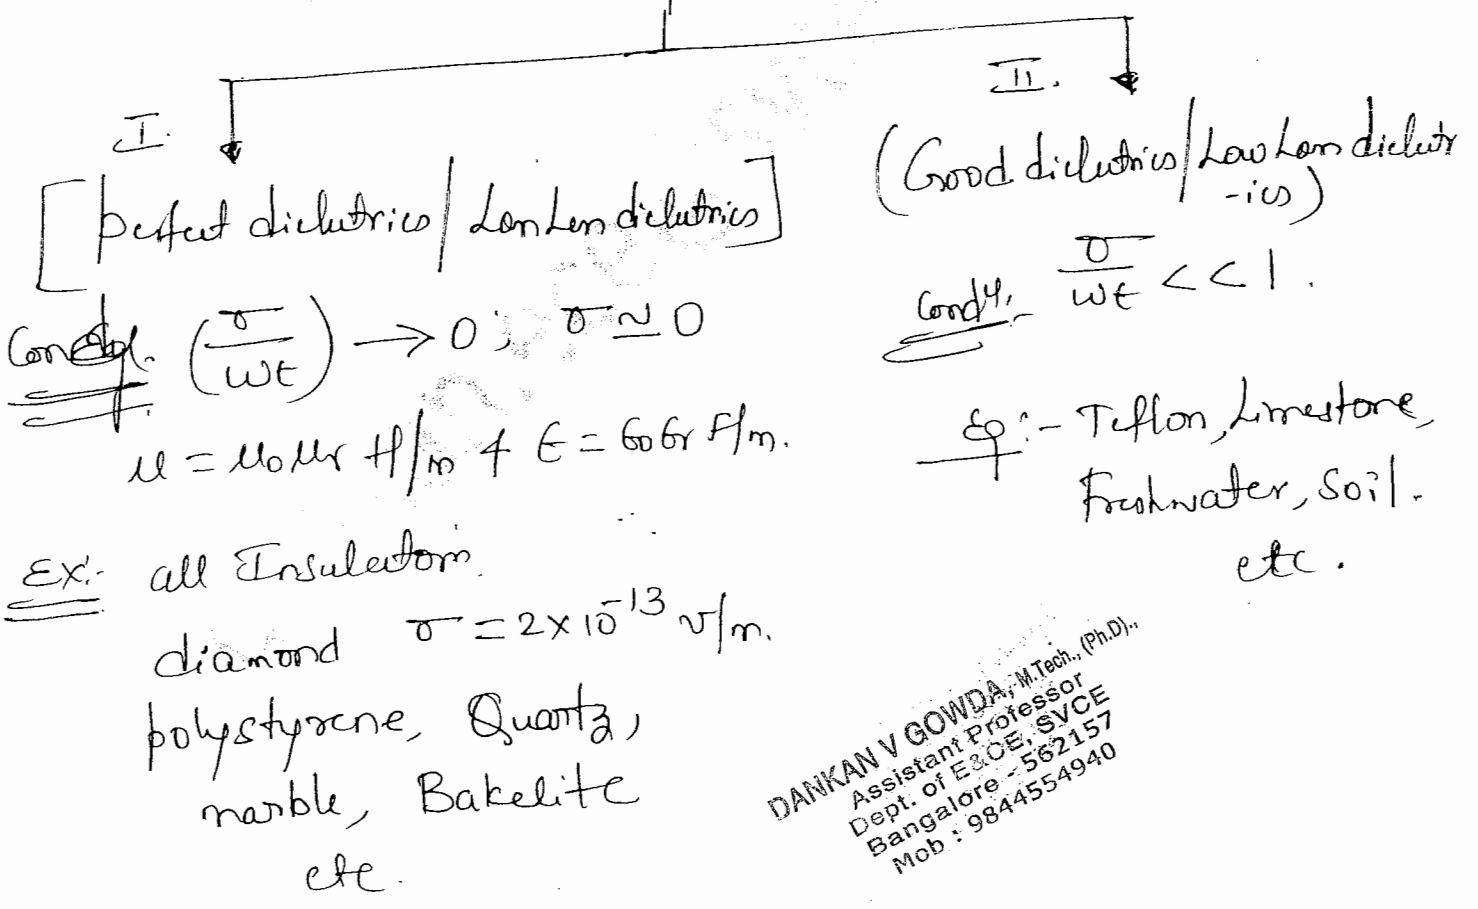 I.
[perfect dielectrics / Lossless dielectrics]
Condy. (σ/ωε) → 0; σ ≃ 0
μ = μ0μr H/m & ε = ε0εr F/m.
Ex:- all Insulators.
diamond σ = 2×10^-13 ℧/m.
polystyrene, Quartz,
marble, Bakelite
etc.
II.
(Good dielectrics / Low Loss dielectr
-ics)
Condy:- σ/ωε << 1.
Eg:- Teflon, Limestone,
Freshwater, Soil.
etc.
DANKAN V GOWDA, M.Tech., (Ph.D).,
Assistant Professor
Dept. of E&CE, SVCE
Bangalore - 562157
Mob : 9844554940